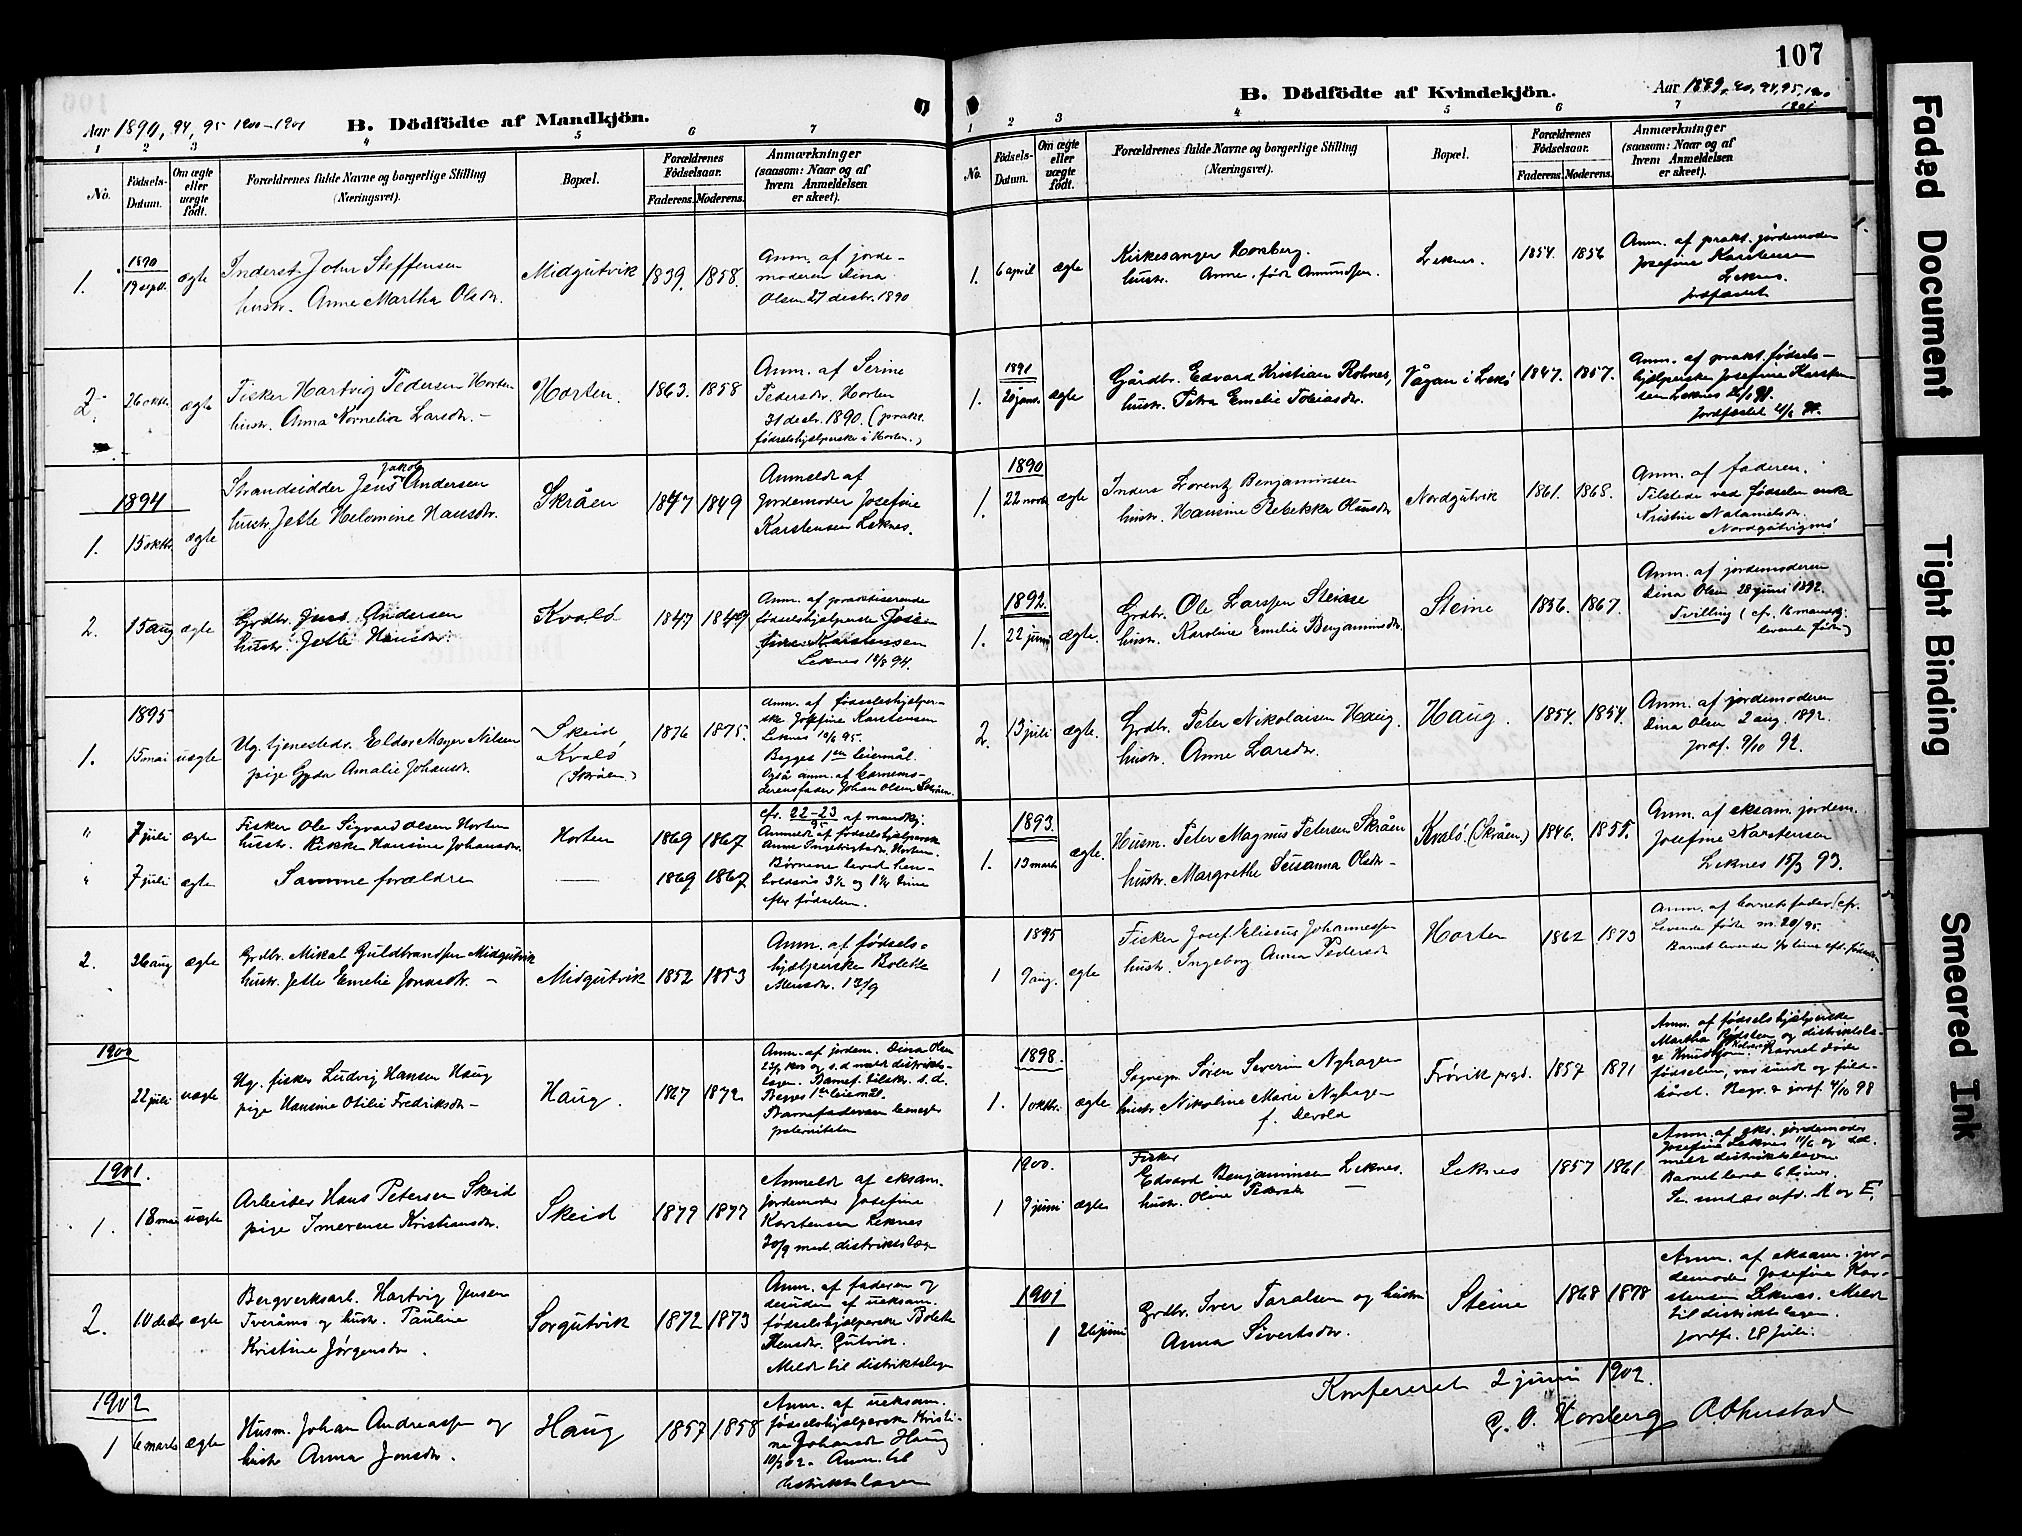 Aar 1890, 94, 95 1900-1901
B. Dödfödte af Mandkjön.
1 2 3 4 5 6 7
No.
Födsels-Datum.
Om ægte eller uægte födt.
Forældrenes fulde Navne og borgerlige Stilling
(Næringsvei).
Bopæl.
Forældrenes Födselsaar.
Faderens. Moderens.
Anmærkninger
(saasom: Naar og af
hvem Anmeldelsen
er skeet).
1. 1890 19 septb. ægte
Inderst John Steffensen
hustr. Anne Martha Olsdr.
Midgutvik 1839. 1858.
Anm. af jorde-
moderen Dina
Olsen 27 decbr. 1890
2. 26 oktbr. ægte
Fisker Hartvig Pedersen Horten
hustr. Anna Kornelia Larsdr. -
Horten. 1863. 1858
Anm. af Serine
Pedersdr. Horten
31 decbr. 1890. (prakt.
fødselshjælperske i Horten.)
1894
1. 15 oktbr. ægte
Strandsidder Jens Jakob Andersen
hustr. Jette Helomine Hansdr.
Skråen 1847 1849
Anmeldt af
Jordemoder Josefine
Karstensen Leknes.
2. 15 aug ægte
Grdbr. Jens Andersen
hustr. Jette Hansdr.
Kvalø 1847 1849
Anm. af praktiserende
fødselshjælperske Jose-
fine Karstensen
Leknes 18/8 94.
1895
1. 15 mai uægte
Ug. tjenestedr. Eldor Meyer Nilsen
pige Gyda Amalie Johansdr.
Skeid
Kvalø
(Skråen)
1876 1875.
Anm. af fødselshjelper-
ske Josefine Karstensen
Leknes 10/6 95.
Begges 1ste leiermål.
Også anm. af barnemo-
derens fader Johan Olsen Skråen.
" 7 juli ægte
Fisker Ole Sigvard Olsen Horten
hustr. Rikke Hansine Johansdr.
Horten 1869 1867
cfr. 22-23 af mandkj.
95
Anmeldt af fødselshjælperske
Anne Ingebrigtsdr. Horten.
" 7 juli ægte
Samme forældre — 1869 1867
Børnene levede hen-
holdsvis 3½ og 1¼ time
efter fødselen.
2. 26 aug ægte
Grdbr. Mikal Guldbrandsen Midgutvik
hustr. Jette Emelie Jonasdr. -
Midgutvik 1852 1853
Anm. af fødsels-
hjælperske Bolette
Mensdr. 12/9
1900
22 juli uægte
Ug. fisker Ludvig Hansen Haug
pige Hansine Otilie Fredriksdr -
Haug. 1867 1872
Anm. af jordem. Dina Olsen
lægen. Barnef. tilskr. s. d.
Begges 1ste leiermål.
Barnefaderen benegter
paterniteten
1901.
1. 18 mai uægte
Arbeider Hans Petersen Skeid
pige Imerense Kristiansdr.
Skeid 1879 1877
Anmeldt af eksam.
jordemoder Josefine
Karstensen Leknes
30/9 med. distriktslæge
2. 10 decbr ægte
Bergverksarb. Hartvig Jensen
Tveråmo og hustr. Pauline
Kristine Jørgensdr.
Sørgutvik 1872 1873
Anm. af faderen og
desuden af ueksam.
fødselshjælperske Bolette
Mensdr. Gutvik.
Meldt til distriktslægen
1902
1 6 marts ægte
Husm. Johan Andreassen og
hustr Anna Jonsdr.
Haug 1857 1858
Anm. af ueksam.
fødselshjælperske Kristi-
ne Johansdr Haug
10/3 02. Anm. til
distriktslægen
107
B. Dödfödte af Kvindekjön.
Aar 1889, 90, 94, 95, 1900
1901
1 2 3 4 5 6 7
No.
Födsels-Datum.
Om ægte eller uægte födt.
Forældrenes fulde Navne og borgerlige Stilling
(Næringsvei).
Bopæl.
Forældrenes Födselsaar.
Faderens. Moderens.
Anmærkninger
(saasom: Naar og af
hvem Anmeldelsen
er skeet).
1. 6 april ægte
Kirkesanger Horsberg.
hustr. Anne, født Amundsen.
Leknes. 1854. 1856
Anm. af prakt. jordemoder
Josefine Karstensen
Leknes.
Jordfæstet
1891
1. 20 jan. ægte
Gårdbr. Edvard Kristian Rolnes,
hustr. Petra Emelie Tobiasdr.
Vågan i Lekø 1847. 1857.
Anm. af prakt. fødsels-
hjelperske Josefine Karsten-
sen Leknes
Jordfæstet
1890
1. 22 novbr ægte
Inders Lorentz Benjaminsen
hustr. Hansine Rebekka Olausdr
Nordgutvik 1861. 1868.
Anm. af faderen.
Tilstede ved fødselen enke
Kristine Natanielsdr.
Nordgutvigmo
1892.
1. 22 juni ægte.
Grdbr. Ole Larssen Steine
hustr. Karoline Emilie Benjaminsdr.
Steine 1836. 1867.
Anm. af jordemoderen
Dina Olsen 28 juni 1892.
Tvilling (cfr. 16 mandkj.
levende født)
2. 13 juli ægte.
Grdbr. Peter Nikolaisen Haug.
hustr. Anne Larsdr.
Haug. 1854. 1854.
Anm. af jordemoderen
Dina Olsen 2 aug. 1892.
jordf. 9/10 92.
1893.
1. 13 marts ægte.
Husm. Peter Magnus Petersen Skråen
hustr. Margrethe Susanna Olsdr -
Kvalø (Skråen.) 1846. 1855.
Anm. af eksam. jordem.
Josefine Karstensen
Leknes 15/3 93.
1895
1 9 aug. ægte
Fisker Josef Eliseus Johannessen
hustr. Ingeborg Anna Pedersdr
Horten 1862 1873
Anm. af barnets fader (cfr.
Levende fødte nr. 20/95.
Barnet levende ½ time eft. fødselen.
1898.
1. 1 oktbr. ægte
Sogprst. Søren Severin Nyhagen
hustr. Nikoline Marie Nyhagen
f. Devold
Frøvik prgd. 1857 1871
Anm. af fødselshjælperske
Martha Rødsten og distriktslæ-
ge Knudtzon. Barnet døde
fødselen, var lindt og fuld-
båret. Begr. & jordf. 4/10 98
1900.
1 9 juni ægte
Fisker
Edvard Benjaminsen Leknes.
hustr. Oline Pedersdr —
Leknes 1857 1861.
Anm. af eks. jordemoder
Josefine Leknes 11/6 og s.d.
meldt distriktslægen
Barnet levde 6 timer.
Se under afd. M og E.
1901
1 26 juni
Grdbr. Iver Taralsen og hustru
Anna Sivertsdr.
Steine 1868 1878
Anm. af eksam. jor-
demoder Josefine Kar-
stensen Leknes. Meldt
til distriktslægen.
jordf. 28 Juli.
Konfereret 2 juni 1902.
G. O. Horsberg
Faded Document
Tight Binding
Smeared Ink